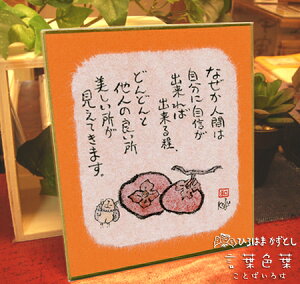 なぜか人間は
自分に自信が
出来れば
出来る程、
どんどんと
他人の良い所
美しい所が
見えてきます。
ひろはまかずとし
言葉色葉
ことばいろは